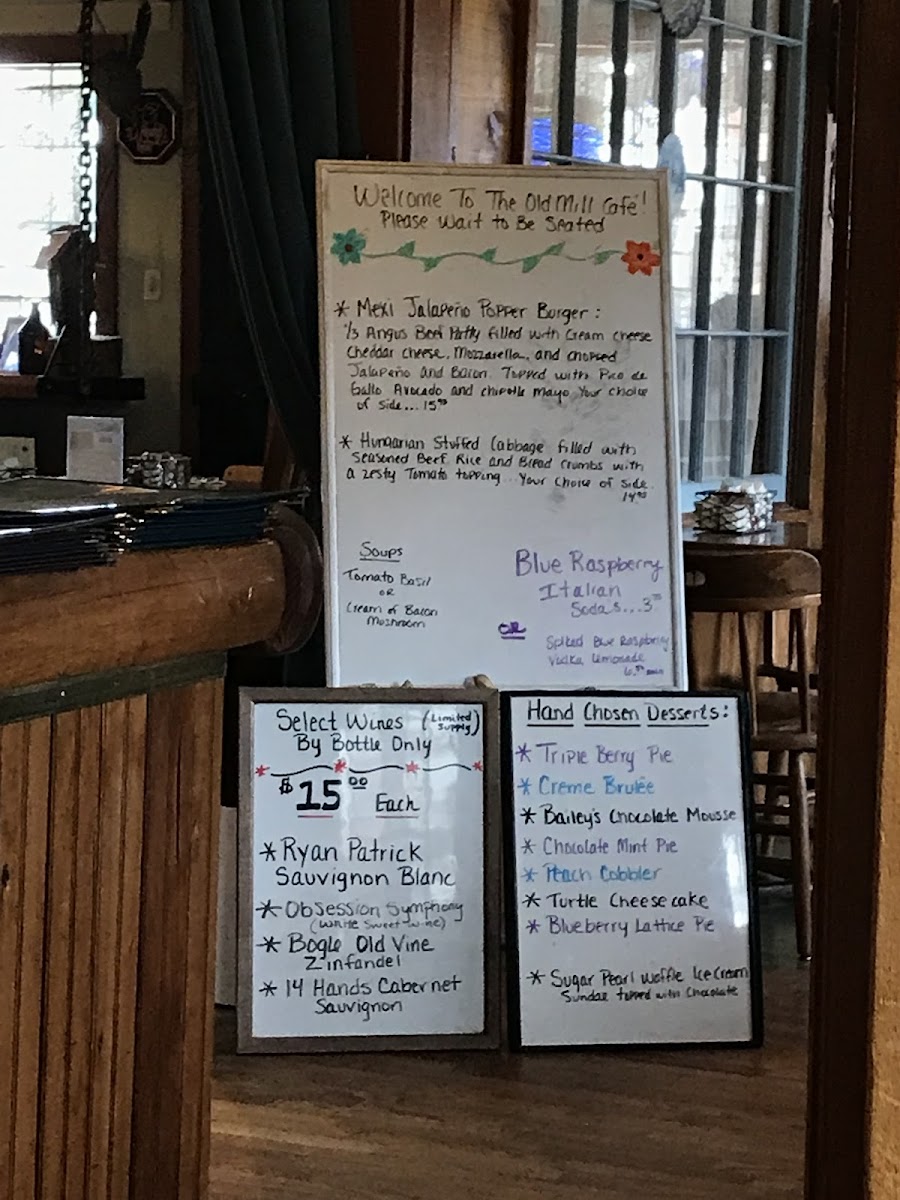 Welcome To The Old Mill Café!
Please Wait to Be Seated
* Mexi Jalapeño Popper Burger:
1/3 Angus Beef Patty filled with Cream cheese
Cheddar cheese, Mozzarella, and chopped
Jalapeño and Bacon. Topped with Pico de
Gallo Avocado and chipotle mayo Your choice
of side...
* Hungarian Stuffed Cabbage filled with
Seasoned Beef, Rice and Bread Crumbs with
a zesty Tomato topping...Your choice of side.
Soups
Tomato Basil
OR
Cream of Bacon
Mushroom
Blue Raspberry
Italian
Sodas...
OR
Spiked Blue Raspberry
Vodka Lemonade
Select Wines (Limited Supply)
By Bottle Only
$15.00 Each
* Ryan Patrick
Sauvignon Blanc
* Obsession Symphony
(White Sweet Wine)
* Bogle Old Vine
Zinfandel
* 14 Hands Cabernet
Sauvignon
Hand Chosen Desserts:
* Triple Berry Pie
* Creme Brulée
* Bailey's Chocolate Mousse
* Chocolate Mint Pie
* Peach Cobbler
* Turtle Cheesecake
* Blueberry Lattice Pie
* Sugar Pearl Waffle Ice Cream
Sundae topped with Chocolate